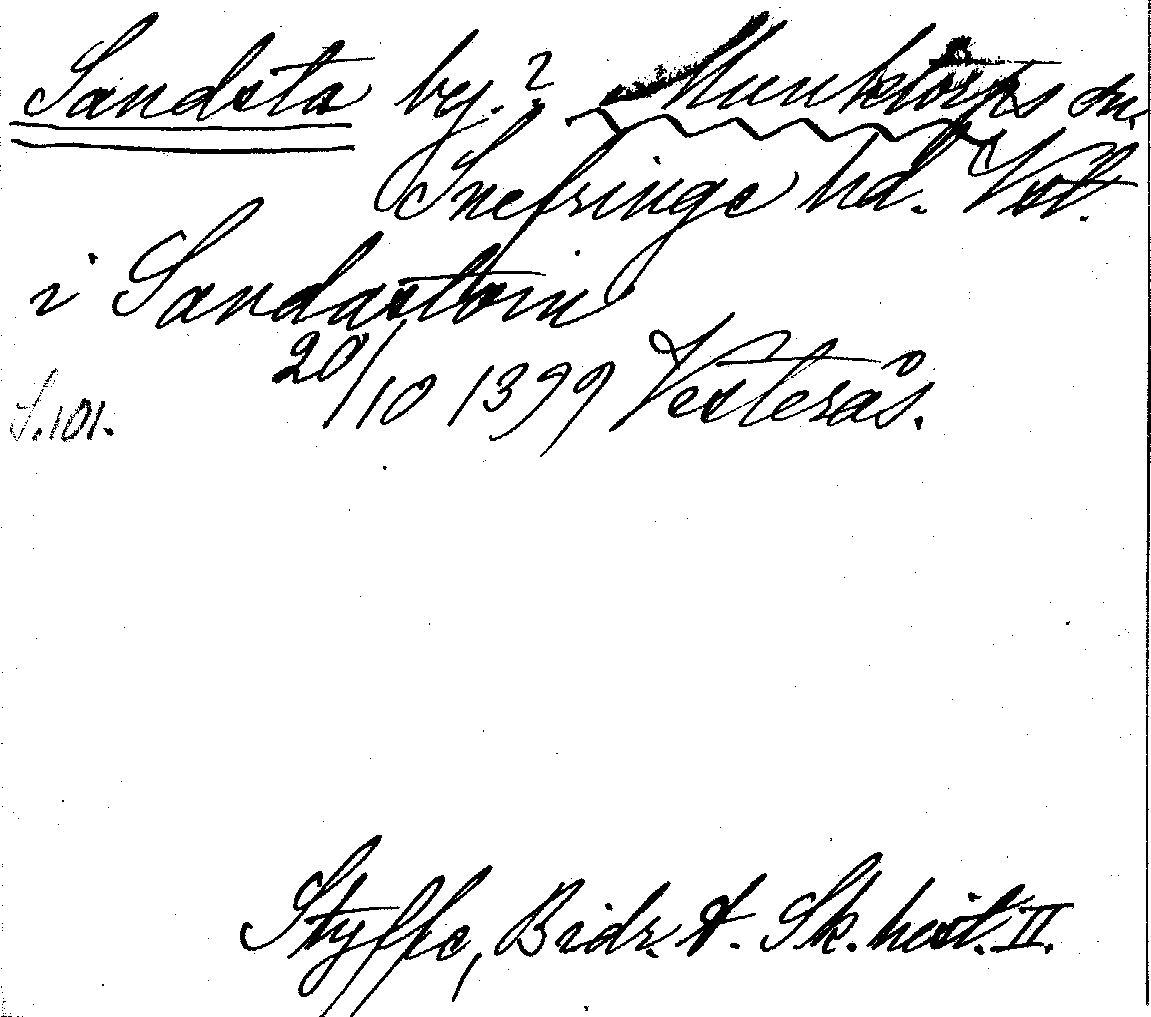 Sandsta by? Munktorps sn.
Snefringe hd. Vstl.
i Sandastom
20/10 1399 Vesterås.
S. 101.
Styffe, Bidr. t. Sk. hist. II.